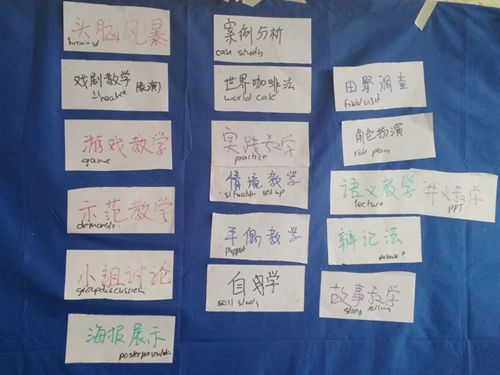 头脑风暴
戏剧教学(表演)
theatre
游戏教学
game
示范教学
demonstr.
小组讨论
group discussion
海报展示
案例分析
case study
世界咖啡法
world cafe
实践教学
practice
情境教学
situation set up
平侧教学
puppet
自学
self study
田野调查
field visit
角色扮演
role plan
语文教学
lecture
讲义教学
PPT
辩论法
debate
故事教学
story telling